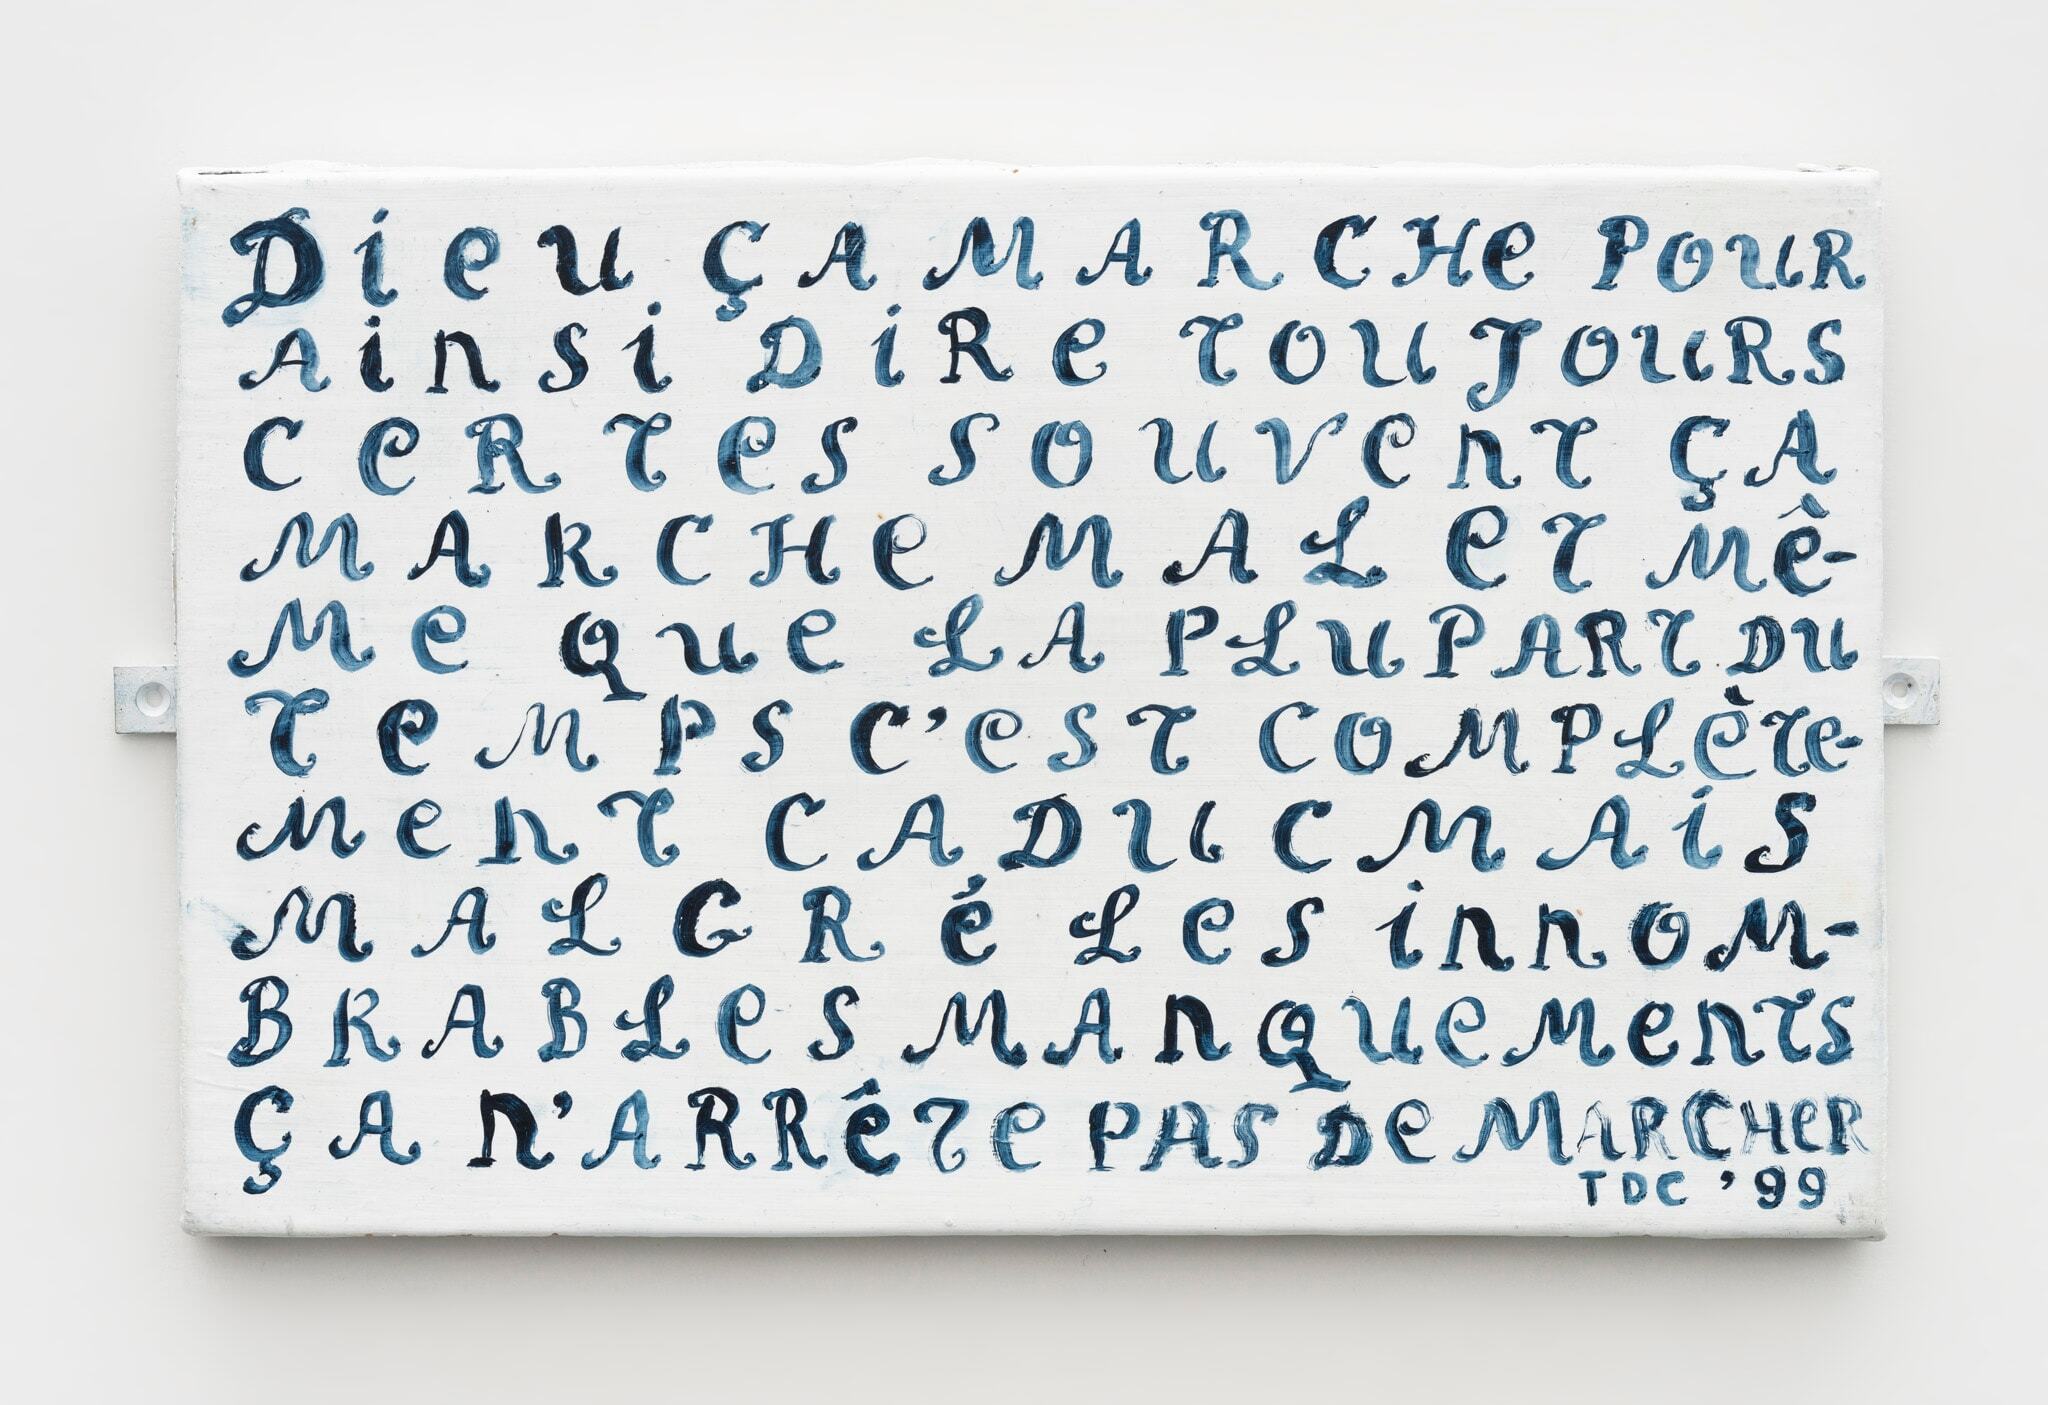 Dieu ÇA MARCHe POUR
AinSi DiRe TOUJOURS
CeRTeS SOUVenT ÇA
MARCHe MAL eT MÊ-
Me QUe LA PLUPART DU
TeMPS C'eST COMPLÈTe-
MenT CADUC MAiS
MALGRé LeS innOM-
BRABLeS MAnQUeMenTS
ÇA n'ARRéTe PAS De MARCHeR
TDC '99